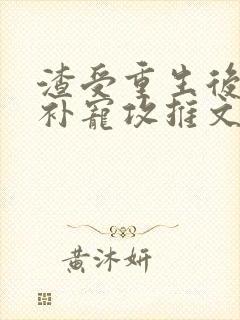 渣受重生後
补寵攻推文
黃沐妍